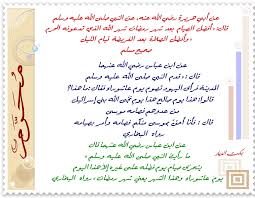 عن أبي هريرة رضي الله عنه، عن النبي صلى الله عليه وسلم
قال: «أفضل الصيام بعد شهر رمضان شهر الله الذي تدعونه المحرم
وأفضل الصلاة بعد الفريضة قيام الليل»
صحيح مسلم
عن ابن عباس رضي الله عنهما
قال: «قدم النبي صلى الله عليه وسلم
المدينة فرأى اليهود تصوم يوم عاشوراء فقال: ما هذا؟
قالوا: هذا يوم صالح هذا يوم نجى الله بني إسرائيل
قال: فأنا أحق بموسى منكم فصامه وأمر بصيامه
رواه البخاري
عن ابن عباس رضي الله عنهما قال
ما رأيت النبي صلى الله عليه وسلم
يتحرى صيام يوم فضله على غيره إلا هذا اليوم
يوم عاشوراء وهذا الشهر يعني شهر رمضان، رواه البخاري
محرم